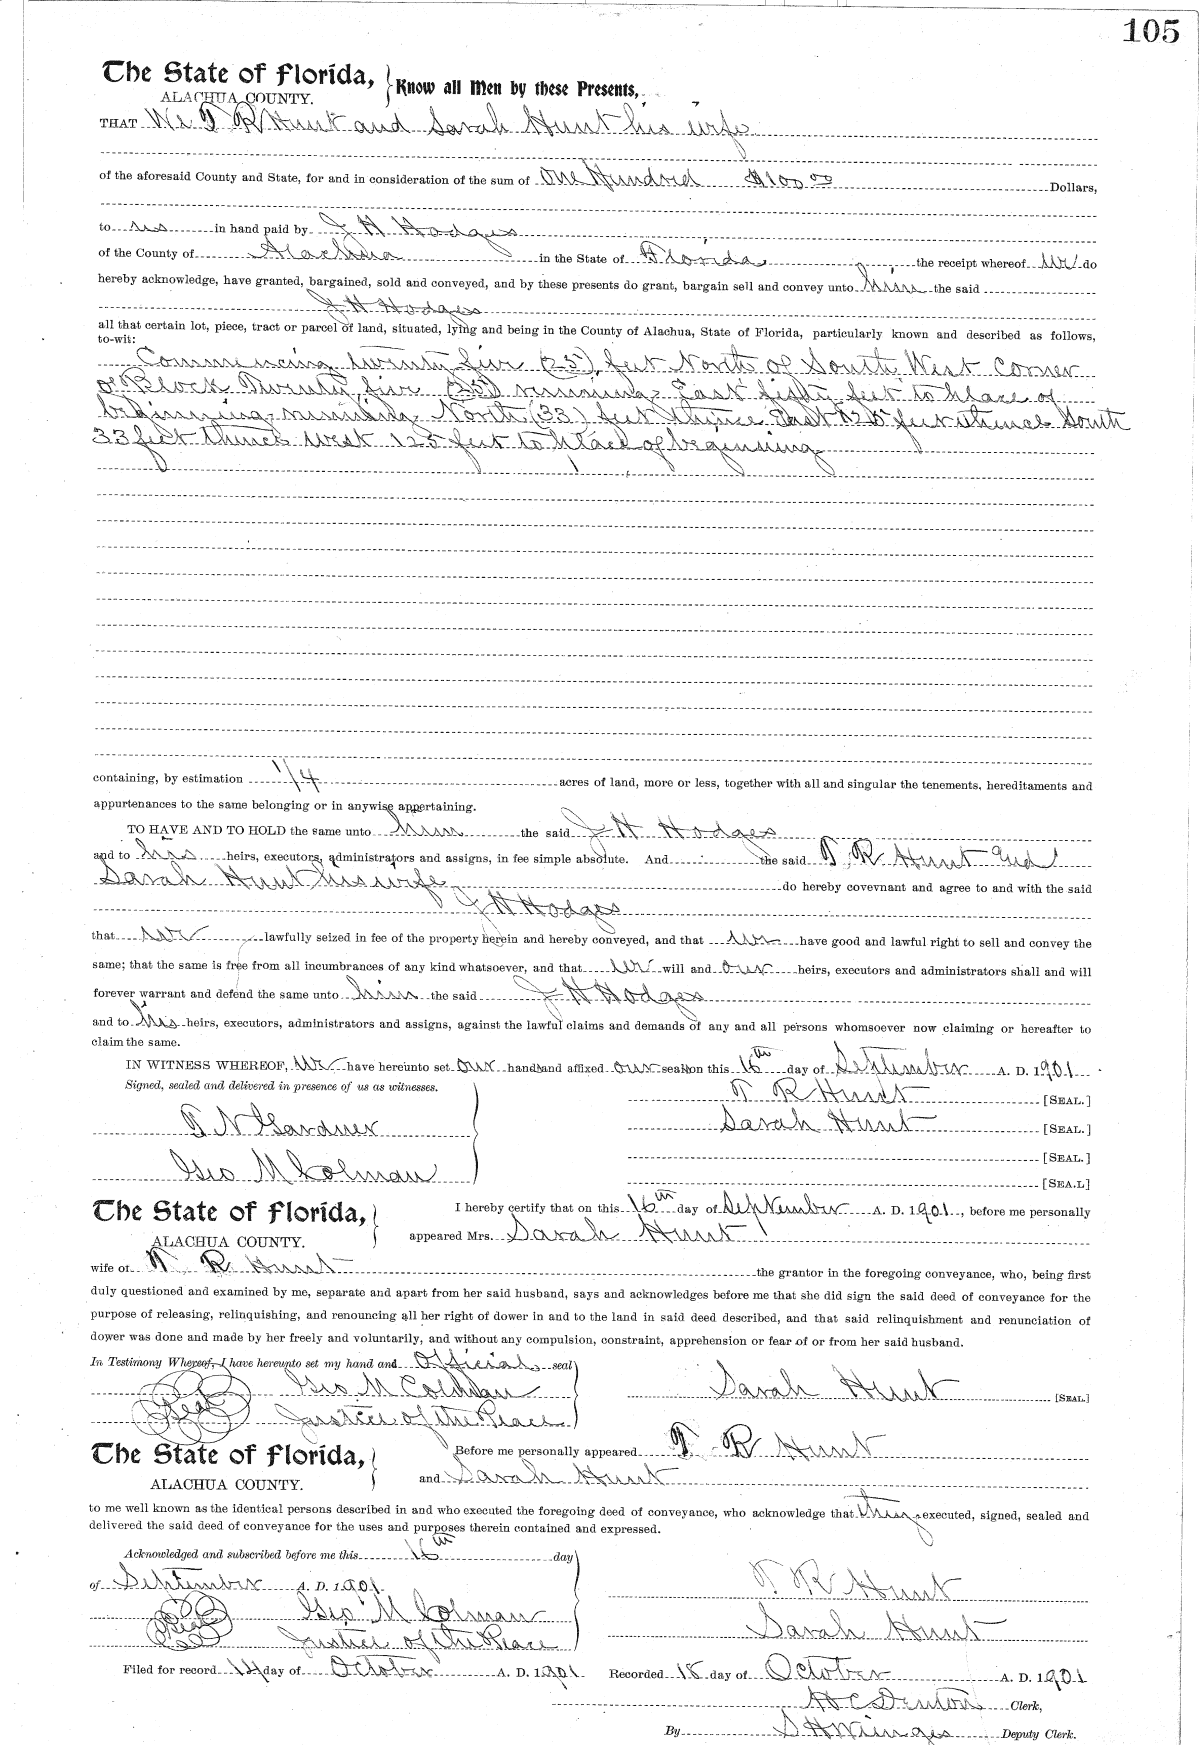 105
The State of Florida,
Know all Men by these Presents,
ALACHUA COUNTY.
THAT We T R Hunt and Sarah Hunt his wife
of the aforesaid County and State, for and in consideration of the sum of One Hundred $100 00 Dollars,
to us in hand paid by J H Hodges
of the County of Alachua in the State of Florida, the receipt whereof we do
hereby acknowledge, have granted, bargained, sold and conveyed, and by these presents do grant, bargain sell and convey unto him the said
J H Hodges
all that certain lot, piece, tract or parcel of land, situated, lying and being in the County of Alachua, State of Florida, particularly known and described as follows,
to-wit:
Commencing twenty five (25) feet North of South West Corner
of Block Twenty five (25) running East fifty feet to place of
beginning running North (33) feet thence East 125 feet thence South
33 feet thence west 125 feet to place of beginning
containing, by estimation 1/4 acres of land, more or less, together with all and singular the tenements, hereditaments and
appurtenances to the same belonging or in anywise appertaining.
TO HAVE AND TO HOLD the same unto him the said J H Hodges
and to his heirs, executors, administrators and assigns, in fee simple absolute. And the said T R Hunt and
Sarah Hunt his wife do hereby covevnant and agree to and with the said
J H Hodges
that we lawfully seized in fee of the property herein and hereby conveyed, and that we have good and lawful right to sell and convey the
same; that the same is free from all incumbrances of any kind whatsoever, and that we will and our heirs, executors and administrators shall and will
forever warrant and defend the same unto him the said J H Hodges
and to his heirs, executors, administrators and assigns, against the lawful claims and demands of any and all persons whomsoever now claiming or hereafter to
claim the same.
IN WITNESS WHEREOF, we have hereunto set our hand and affixed our seal on this 16th day of September A. D. 1901
Signed, sealed and delivered in presence of us as witnesses.
T R Hunt [SEAL.]
T N Gardner
Sarah Hunt [SEAL.]
[SEAL.]
Geo M Colman
[SEA.L]
The State of Florida,
I hereby certify that on this 16th day of September A. D. 1901, before me personally
ALACHUA COUNTY.
appeared Mrs. Sarah Hunt
wife of T R Hunt the grantor in the foregoing conveyance, who, being first
duly questioned and examined by me, separate and apart from her said husband, says and acknowledges before me that she did sign the said deed of conveyance for the
purpose of releasing, relinquishing, and renouncing all her right of dower in and to the land in said deed described, and that said relinquishment and renunciation of
dower was done and made by her freely and voluntarily, and without any compulsion, constraint, apprehension or fear of or from her said husband.
In Testimony Whereof, I have hereunto set my hand and Official seal
Geo M Colman
Sarah Hunt [SEAL]
Seal Justice of the Peace
The State of Florida,
Before me personally appeared T R Hunt
ALACHUA COUNTY.
and Sarah Hunt
to me well known as the identical persons described in and who executed the foregoing deed of conveyance, who acknowledge that they executed, signed, sealed and
delivered the said deed of conveyance for the uses and purposes therein contained and expressed.
Acknowledged and subscribed before me this 16th day
of September A. D. 1901
T. R Hunt
Geo M Colman
Sarah Hunt
Seal Justice of the Peace
Filed for record 14 day of October A. D. 1901
Recorded 18 day of October A. D. 1901
H C Denton Clerk,
By S H Wienges Deputy Clerk.